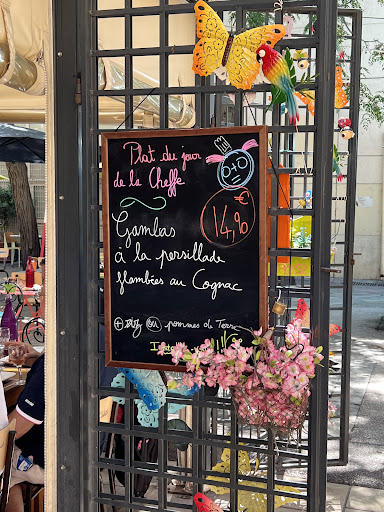 Plat du jour
de la Cheffe
14,90 €
Gambas
à la persillade
flambées au Cognac
+ riz ou pommes de Terre